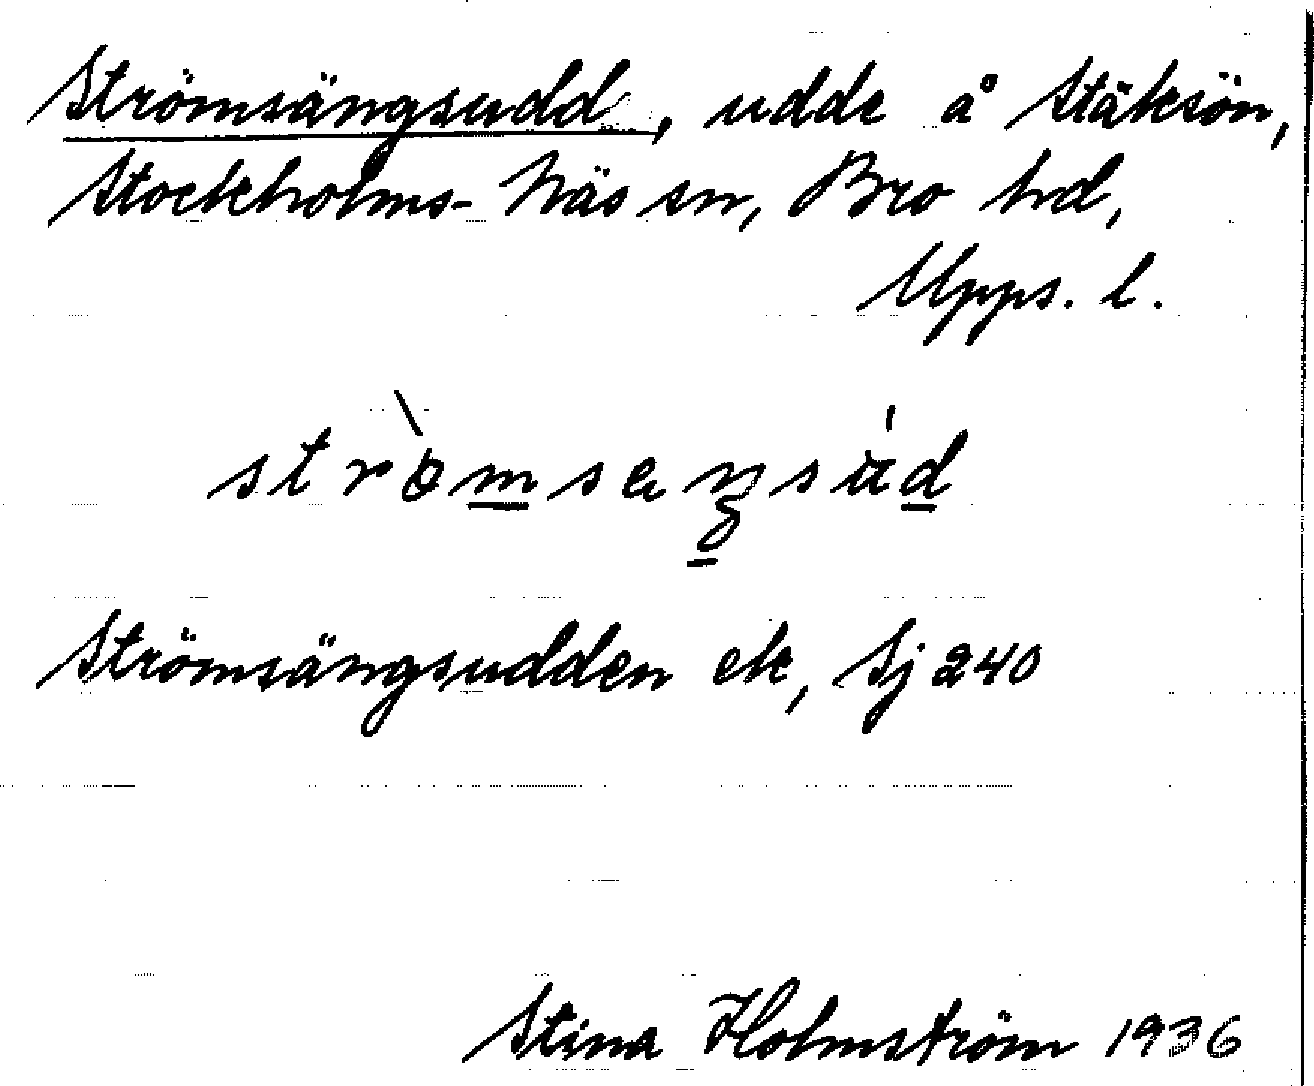 Strömsängsudd, udde å Stäksön,
Stockholms-Näs sn, Bro hd,
Upps. l.
Strömsängsudden ek, Sj 240
Stina Holmström 1936